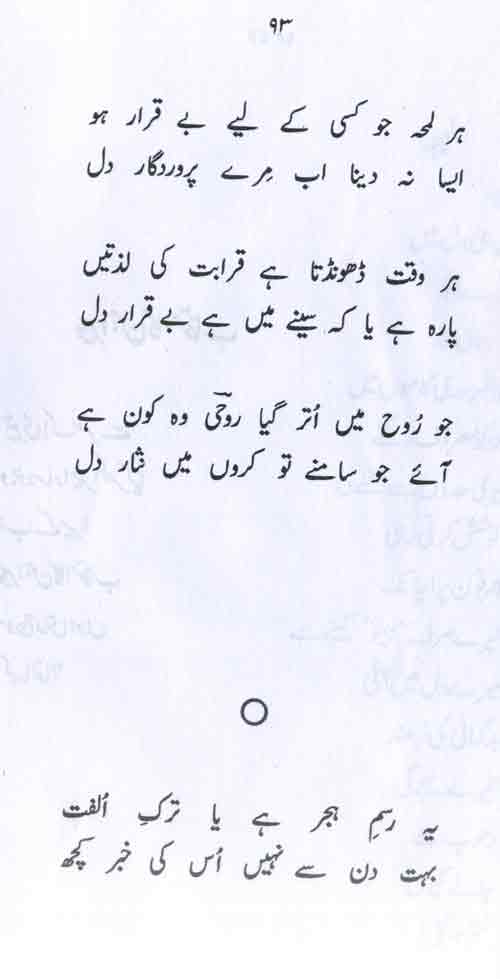 ۹۳
ہر لمحہ جو کسی کے لیے بے قرار ہو
ایسا نہ دینا اب مِرے پروردگار دل
ہر وقت ڈھونڈتا ہے قرابت کی لذتیں
پارہ ہے یا کہ سینے میں ہے بے قرار دل
جو رُوح میں اُتر گیا روحیؔ وہ کون ہے
آئے جو سامنے تو کروں میں نثار دل
یہ رسمِ ہجر ہے یا ترکِ اُلفت
بہت دن سے نہیں اُس کی خبر کچھ